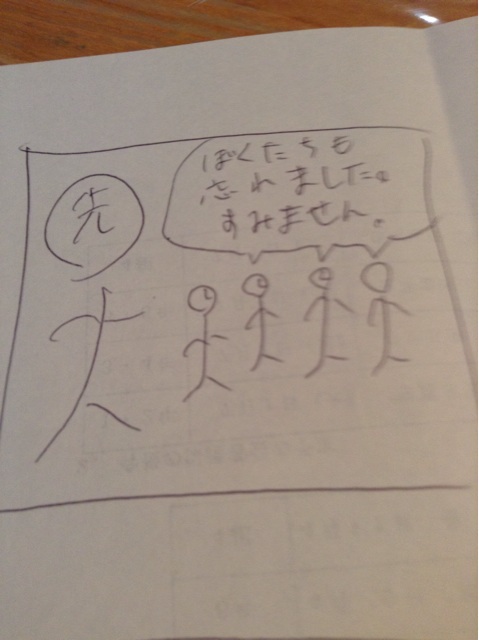 先
ぼくたちも
忘れました。
すみません。